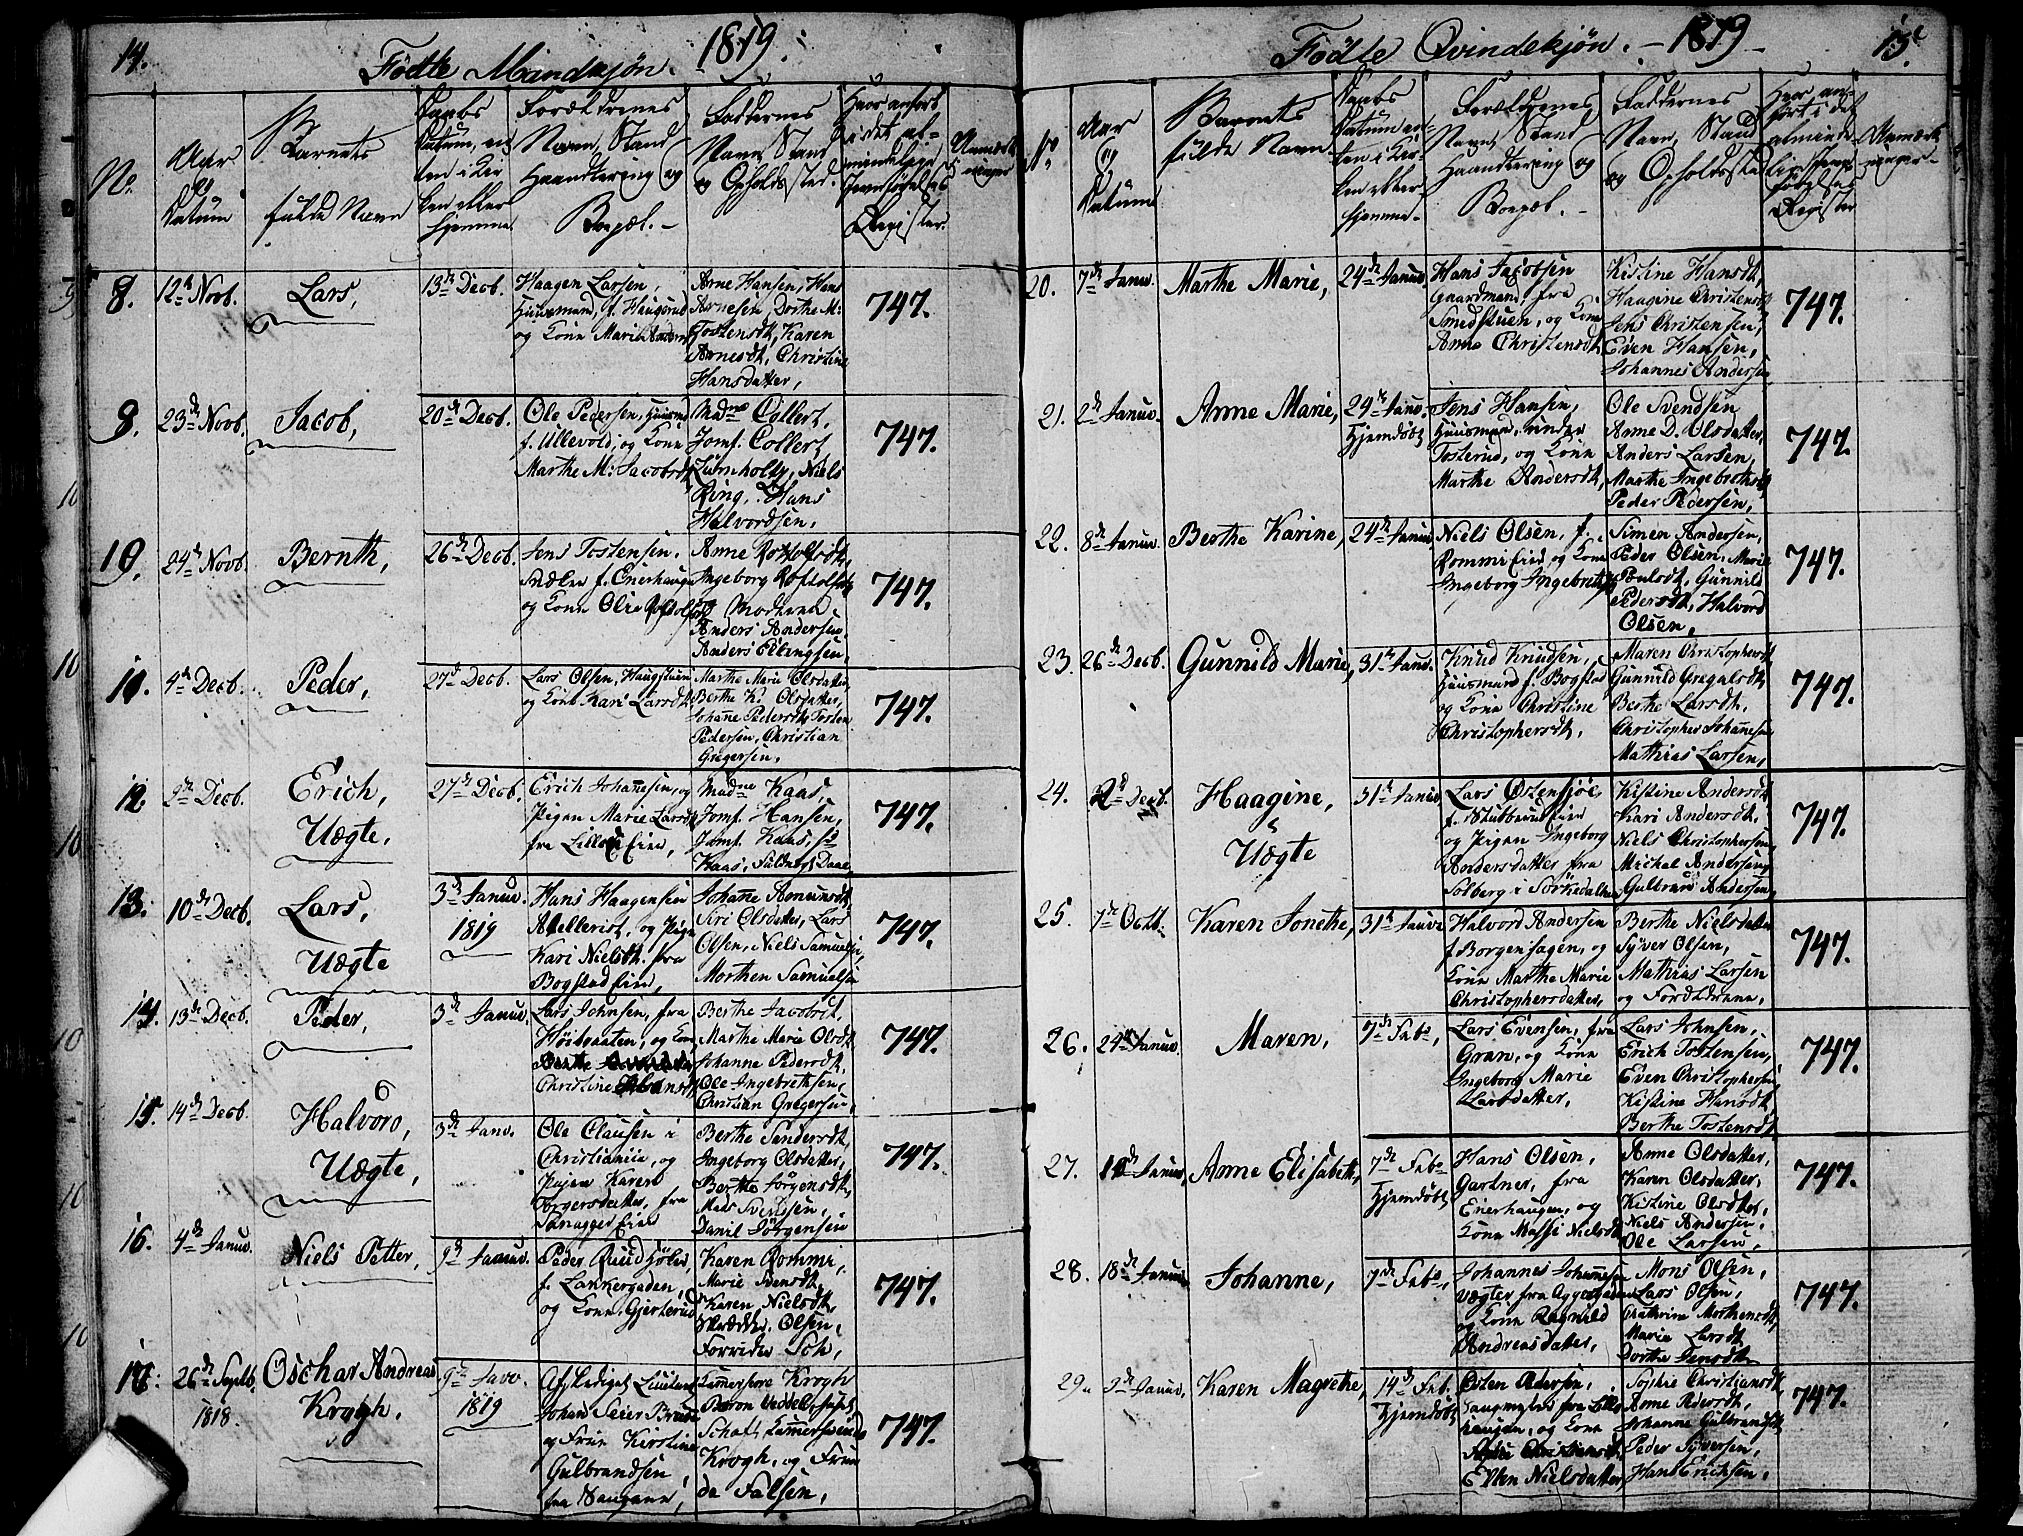 14.
Födte Mandkjøn. 1819.
No.
Aar og Datum
Barnets fulde Navn
Daabs Datum, enten i Kirken eller hjemme
Forældrenes Navn, Stand Haandtering og Boepæl.
Faddernes Navn, Stand og Opholdsted.
Hvor anført i det almindelige Jevnførelses Register.
Anmærkninger
8.
12te Novb.
Lars,
13de Decb.
Haagen Larsen,
Huusmand, f. Haugerud
og Kone Marie
Arne Hansen, Hans
Arnesen, Dorthe M:
Tostensdt, Karen
Arnesdt, Christine
Hansdatter,
747.
9.
23de Novb.
Jacob,
20de Decb.
Ole Pedersen, Huusmd
f. Ullevold, og Kone
Marthe M: Jacobsdt,
Madme Collert,
Jomf. Collert
Lumholtz, Niels
Ring, Hans
Halvordsen,
747.
10.
24de Novb.
Bernth,
26de Decb.
Jens Tostensen,
f. Enerhaugen
og Kone Olea
Anne
Ingeborg
Moderen,
Anders Andersen,
Anders Ellingsen,
747.
11.
4de Decb.
Peder,
27de Decb.
Lars Olsen, Haugstuen
og Kone Kari Larsdt
Marthe Marie Olsdatter,
Berthe K. Olsdatter,
Johane Pedersdt, Tosten
Pedersen, Christian
Gregersen,
747.
12.
2de Decb.
Erich,
Uægte,
27de Decb.
Erich Johannesen, og
Pigen Marie Larsdt
fra Lilloe Eier,
Madme Kaas,
Jomf. Hansen,
Jomf. Kaas, Hr
Kaas, Fuldmægt. Daae
747.
13.
10de Decb.
Lars,
Uægte
3de Januv.
1819
Hans Haagensen
Artillerist, og Pigen
Kari Nielsdt. fra
Bogstad Eier,
Johanne Amunsdt,
Siri Olsdatter, Lars
Olsen, Niels Samuelsen,
Morthen Samuelsen
747.
14.
13de Decb.
Peder,
3de Januv.
Lars Johnsen, fra
Höibraaten, og Kone
Christine
Berthe Jacobsdt,
Marthe Marie Olsdt,
Johanne Pedersdt,
Ole Ingebrethsen,
Christian Gregersen,
747.
15.
14de Decb.
Halvord,
Uægte,
3de Janv.
Ole Clausen i
Christiania, og
Pigen Karen
Torgersdatter, fra
Eier
Berthe Andersdt,
Ingeborg Olsdatter,
Berthe Jörgensdt,
Mads Svendsen,
Daniel Jörgensen
747.
16.
4de Januv.
Niels Petter,
9de Januv.
Peder
f. Lakkergaden,
og Kone Gjertrud
Karen Rommi,
Marie Svensdt,
Karen Nielsdt,
Skrædder Olsen,
Forrider Toh,
747.
17.
26de Septb.
1818.
Oschar Andreas
Krogh,
9de Janv.
1819
Af Lediget Lieutenant
Johan Seier Bruun
og Frue Kirstine
Gulbrandsen
fra Haugann,
Kammerherre Krogh
Baron Wedel,
Kammerherreinde
Krogh, og Frue
de Falsen,
747.
Födte Qvindekjön. - 1819 -
15.
No.
Aar og Datum
Barnets fulde Navn
Daabs Datum enten i Kirken eller hjemme.
Forældrenes Navn, Stand Haandtering og Boepæl.
Faddernes Navn, Stand og Opholdsted
Hvor anført i det almindelige Jevnførelses Register
Anmærkninger
20.
7de Januv.
Marthe Marie,
24de Januv.
Hans Jacobsen
Gaardmand, fra
Smedstuen, og Kone
Anne Christensdt,
Kistine Hansdt,
Haagine Christensdt,
Jens Christensen,
Even Hansen,
Johannes Andersen
747.
21.
2de Januv.
Anne Marie,
24de Januv.
Hjemdöbt
Jens Hansen,
Huusmand, under
Tosterud, og Kone
Marthe Andersdt,
Ole Svendsen
Anne D. Olsdatter,
Anders Larsen,
Marthe Ingebrethsdt,
Peder Pedersen,
747.
22.
8de Januv.
Berthe Karine,
24de Januv.
Niels Olsen, f.
Rommi Eier, og Kone
Ingeborg Ingebretsdt
Simen Andersen,
Peder Olsen, Marie
Poulsdt, Gunnild
Pedersdt, Halvord
Olsen,
747.
23.
26de Decb.
Gunnild Marie,
31te Januv.
Knud Knudsen,
Huusmand f. Bogstad
og Kone Christine
Christophersdt,
Maren Christophersdt,
Gunnild
Berthe Larsdt,
Christopher Johannesen
Mathias Larsen,
747.
24.
Decb.
Haagine,
Uægte
31te Januv.
Lars Östensjöe,
f. Stubberud Eier
og Pigen Ingeborg
Andersdatter fra
Solberg i Sörkedalen
Kistine Andersdt,
Kari Andersdt,
Niels Christophersen,
Michel Andersen,
Gulbrand Andersen,
747.
25.
7de Octb.
Karen Jonethe,
31te Januv.
Halvord Andersen
f. Borgenhagen, og
Kone Marthe Marie
Christophersdatter,
Berthe Nielsdatter
Syver Olsen,
Mathias Larsen
og Forældrene,
747.
26.
24de Januv.
Maren,
7de Feb.,
Lars Evensen, fra
Gran, og Kone
Ingeborg Marie
Larsdatter,
Lars Johnsen,
Erich Tostensen,
Even Christophersen,
Kistine Hansdt,
Berthe Tostensdt
747.
27.
Januv.
Anne Elisabeth,
7de Feb.
Hjemdöbt
Hans Olsen,
Gartner, fra
Enerhaugen, og
Kone Massi Nielsdt,
Anne Olsdatter,
Karen Olsdatter,
Kistine Olsdtter,
Niels Andersen,
Ole Larsen,
747.
28.
18de Januv.
Johanne,
7de Feb.,
Johannes Johannesen
Vægter fra Aggersgaden
og Kone Ragnild
Andreasdatter,
Mons Olsen,
Lars Olsen,
Cathrine Morthensdt,
Marie Larsdt,
Dorthe Jensdt
747.
29.
2de Januv.
Karen Magrethe,
14de Feb.
Hjemdöbt
Osten Pedersen,
fra Lille
haugen, og Kone
Ellen Nielsdatter,
Sophie Christiansdt,
Anne Pedersdt,
Johanne Gulbrandsdt,
Peder Syversen,
Hans Erichsen,
747.